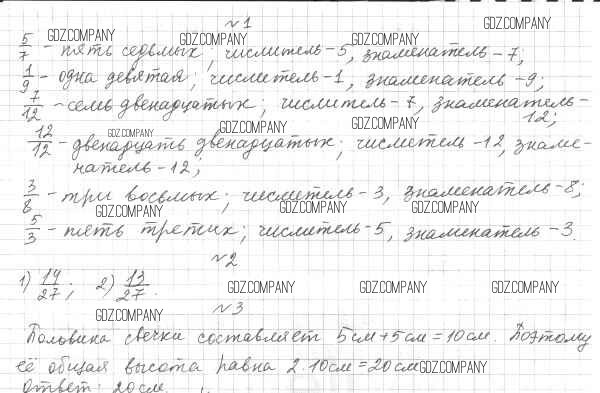 №1
GDZ.COMPANY
GDZ.COMPANY GDZ.COMPANY GDZ.COMPANY
5/7 - пять седьмых; числитель-5, знаменатель-7;
1/9 - одна девятая; числитель-1, знаменатель-9;
7/12 - семь двенадцатых; числитель-7, знаменатель-
12;
GDZ.COMPANY GDZ.COMPANY GDZ.COMPANY
12/12 - двенадцать двенадцатых; числитель-12, знаме-
натель-12;
3/8 - три восьмых; числитель-3, знаменатель-8;
GDZ.COMPANY GDZ.COMPANY GDZ.COMPANY
5/3 - пять третих; числитель-5, знаменатель-3.
№2
1) 14/27; 2) 13/27.
GDZ.COMPANY GDZ.COMPANY GDZ.COMPANY
№3
GDZ.COMPANY
Половина свечки составляет 5см+5см=10см. Поэтому
её общая высота равна 2·10см=20см
GDZ.COMPANY
Ответ: 20см.